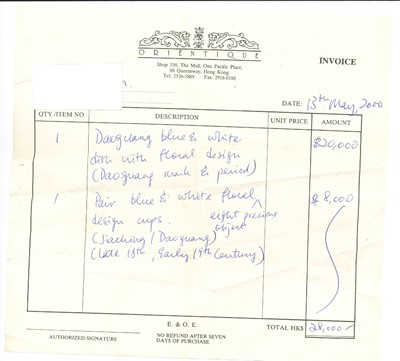 喜慶堂
ORIENTIQUE
Shop 330, The Mall, One Pacific Place,
88 Queensway, Hong Kong.
Tel: 2526-5889 Fax: 2918-0180
INVOICE
DATE: 13th May, 2000
QTY./ITEM NO DESCRIPTION UNIT PRICE AMOUNT
1 Daoguang blue & white $20,000
dish with floral design
(Daoguang mark & period)
1 Pair blue & white floral $8,000
design cups. eight precious
object
(Jiaching / Daoguang)
(late 18th, Early 19th Century)
E. & O. E. TOTAL HK$ 28,000 -
AUTHORIZED SIGNATURE NO REFUND AFTER SEVEN
DAYS OF PURCHASE